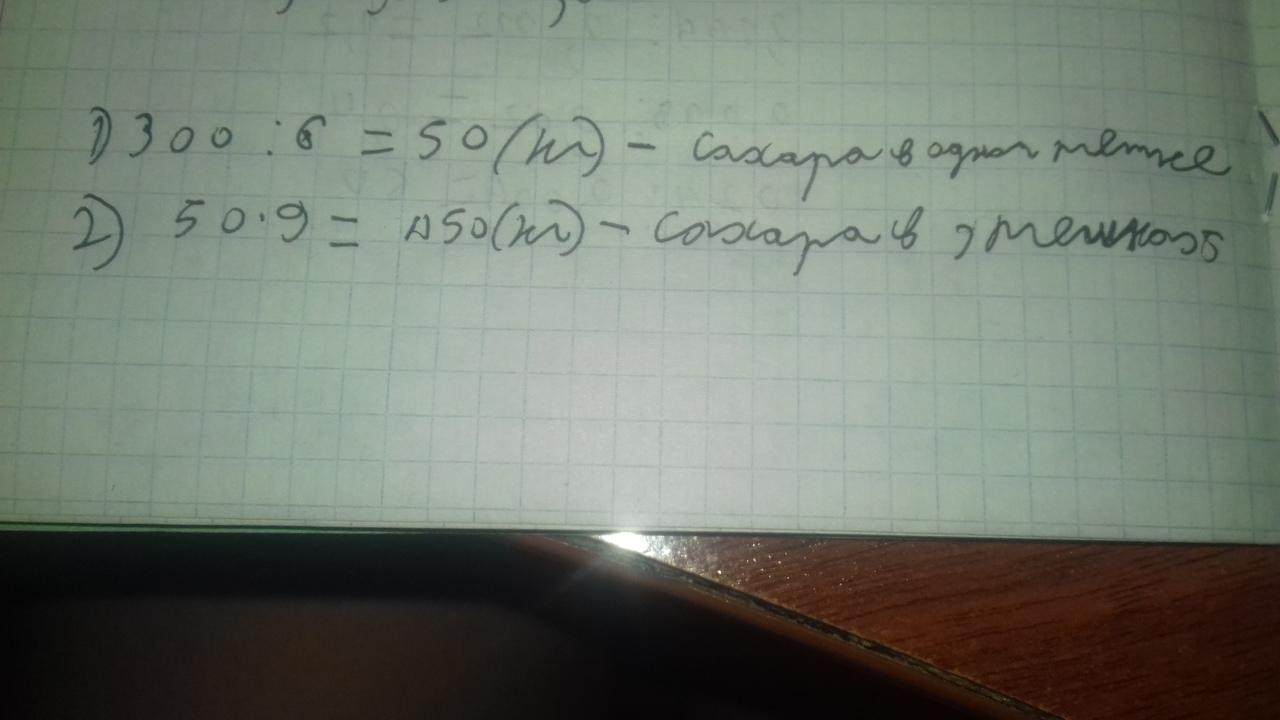 1) 300 : 6 = 50 (кг) - сахара в одном мешке
2) 50 · 9 = 450 (кг) - сахара в 9 мешках